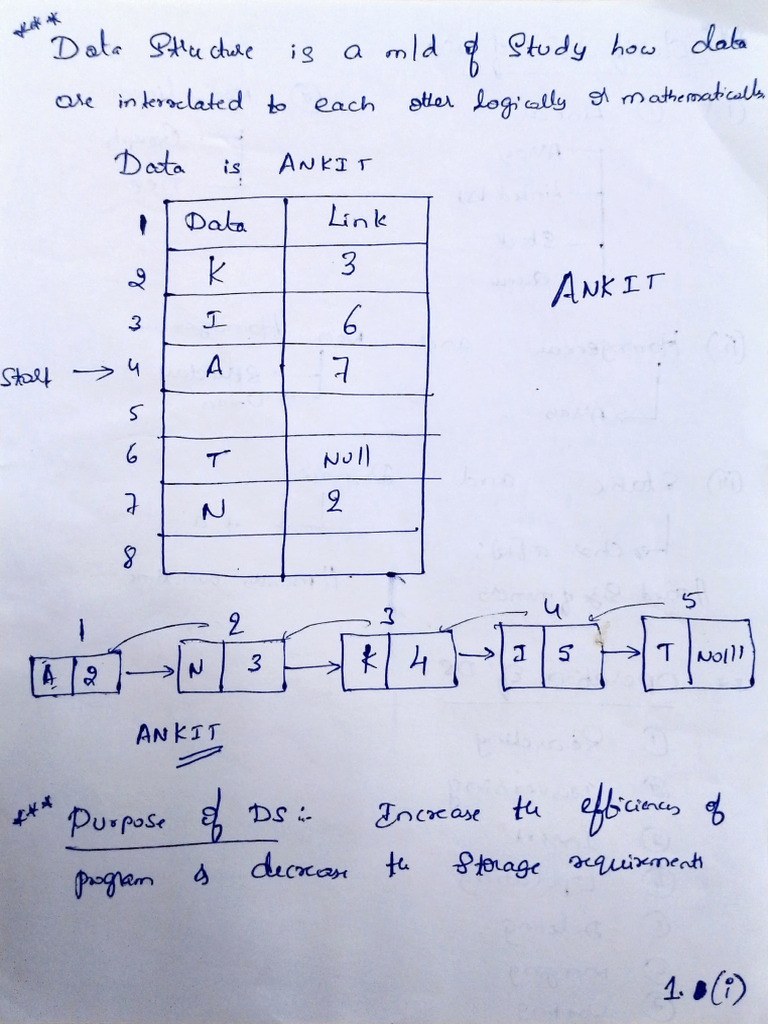 ***
Data Structure is a m/d of Study how data
are interrelated to each other logically or mathematically
Data is ANKIT
1 Data Link
2 K 3
3 I 6
ANKIT
Start → 4 A 7
5
6 T Null
7 N 2
8
1 2 3 4 5
A 2 → N 3 → K 4 → I 5 → T Null
ANKIT
*** Purpose of DS :- Increase the efficiency of
program & decrease the storage requirements
1. (i)